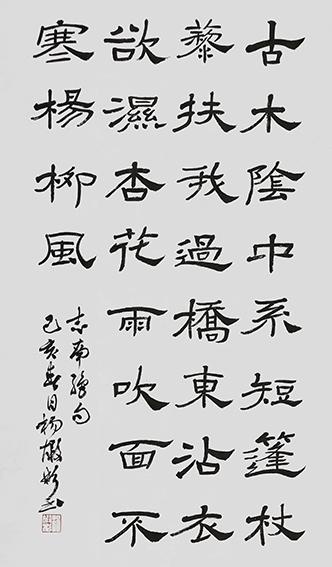 古木陰中系短篷杖
藜扶我過橋東沾衣
欲濕杏花雨吹面不
寒楊柳風
志南絕句
己亥春日楊